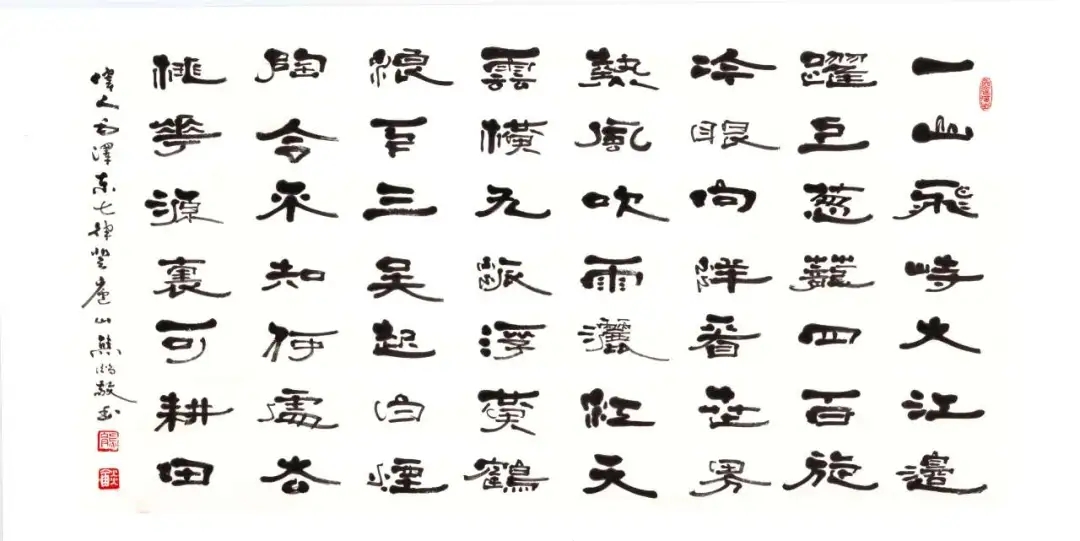 一山飛峙大江邊
躍上葱蘢四百旋
冷眼向洋看世界
熱風吹雨灑紅天
雲橫九派浮黃鶴
浪下三吳起白煙
陶令不知何處去
桃花源裏可耕田
偉人毛澤東七律登廬山熊敬书